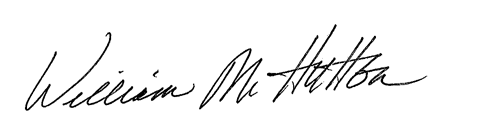 William M. Hutton